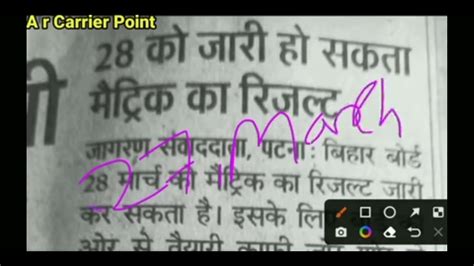 A r Carrier Point
28 को जारी हो सकता
मैट्रिक का रिजल्ट
27 March
जागरण संवाददाता, पटना: बिहार बोर्ड
28 मार्च को मैट्रिक का रिजल्ट जारी
कर सकता है। इसके लिए
ओर से तैयारी काफी